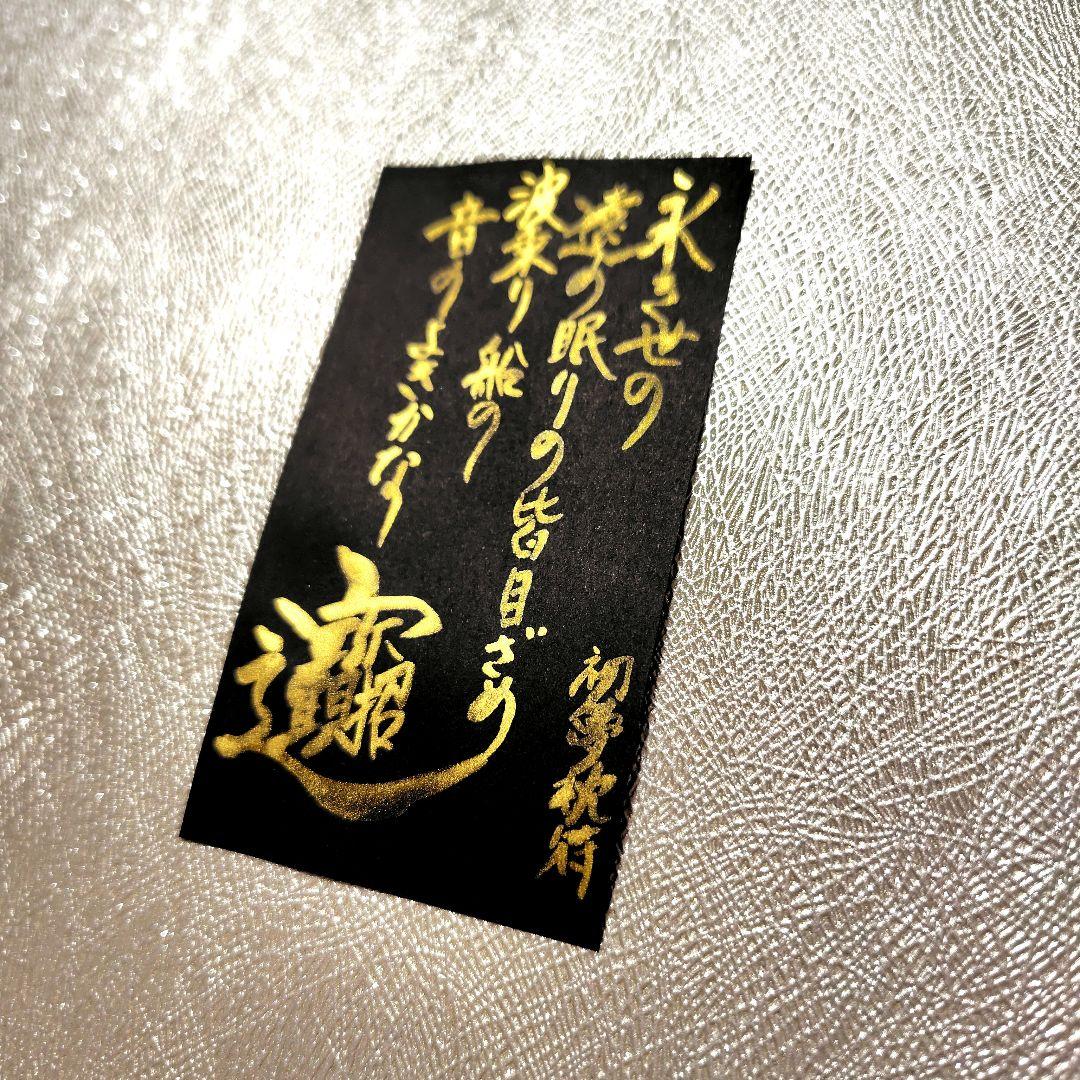 永き世の
遠の眠りの皆目ざめ
波乗り船の
音のよきかな
初夢枕符
招財進寶